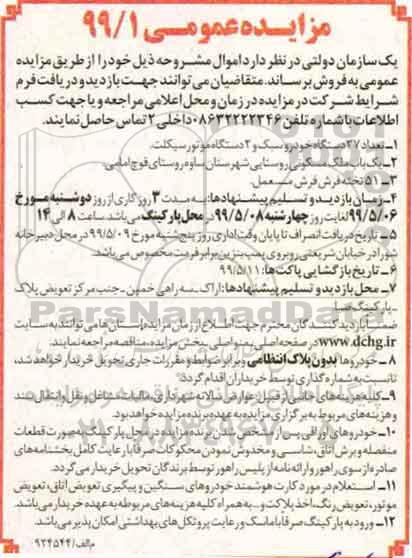 مزایده عمومی ۹۹/۱
یک سازمان دولتی در نظر دارد اموال مشروحه ذیل خود را از طریق مزایده
عمومی به فروش برساند. متقاضیان می توانند جهت بازدید و دریافت فرم
شرایط شرکت در مزایده در زمان و محل اعلامی مراجعه و یا جهت کسب
اطلاعات با شماره تلفن ۰۸۶۳۲۲۲۲۳۴۶ داخلی ۲ تماس حاصل نمایند.
۱ـ تعداد ۲۷ دستگاه خودرو سبک و ۲ دستگاه موتور سیکلت.
۲ـ یک باب ملک مسکونی روستایی شهرستان ساوه روستای قوچ امامی.
۳ـ ۵۱ تخته فرش فرش مستعمل.
۴ـ زمان بازدید و تسلیم پیشنهادها: به مدت ۳ روز کاری از روز دوشنبه مورخ
۹۹/۵/۰۶ لغایت روز چهارشنبه ۹۹/۵/۰۸ در محل پارکینگ می باشد. ساعت ۸ الی ۱۴
۵ـ تاریخ دریافت انصراف تا پایان وقت اداری روز پنج شنبه مورخ ۹۹/۵/۰۹ در محل دبیرخانه
شورا در خیابان شریعتی روبروی پمپ بنزین برابر فرمت مخصوص می باشد.
۶ـ تاریخ بازگشایی پاکت ها: ۹۹/۵/۱۱
۷ـ محل بازدید و تسلیم پیشنهادها: اراک ـ سه راهی خمین ـ جنب مرکز تعویض پلاک
ـ پارکینگ
ضمنا بازدید کنندگان محترم جهت اطلاع از زمان مزایده استان ها می توانند به سایت
www.dchg.ir در صفحه اصلی بخش مزایده، مناقصه مراجعه نمایند.
۸ـ خودروها بدون پلاک انتظامی و برابر ضوابط و مقررات جاری تحویل خریدار خواهد شد،
تا نسبت به شماره گذاری توسط خریداران اقدام گردد.
۹ـ کلیه هزینه های جانبی از قبیل عوارض سالانه شهرداری، مالیات مشاغل و نقل و انتقال سند
و هزینه های مربوط به برگزاری مزایده به عهده برنده مزایده خواهد بود.
۱۰ـ خودروهای اوراقی پس از مشخص شدن برنده مزایده در محل پارکینگ به صورت قطعات
منفصله و برش اتاق، شاسی و مخدوش نمودن محکوکات صرفا با رعایت کامل بخشنامه های
صادره از سوی راهور و ارائه نامه از پلیس راهور توسط برندگان تحویل خریدار می گردد.
۱۱ـ استعلام در مورد کارت هوشمند خودروهای سنگین و پیگیری تعویض اتاق، تعویض
موتور، تعویض رنگ، اخذ پلاک و... به همراه کلیه هزینه های مربوطه به عهده خریدار می باشد.
۱۲ـ ورود به پارکینگ صرفا با ماسک و رعایت پروتکل های بهداشتی امکان پذیر می باشد.
م الف/ ۹۲۴۵۴۴
ParsNamadData
۰۲۱-۸۸۳۴۹۶۷۰